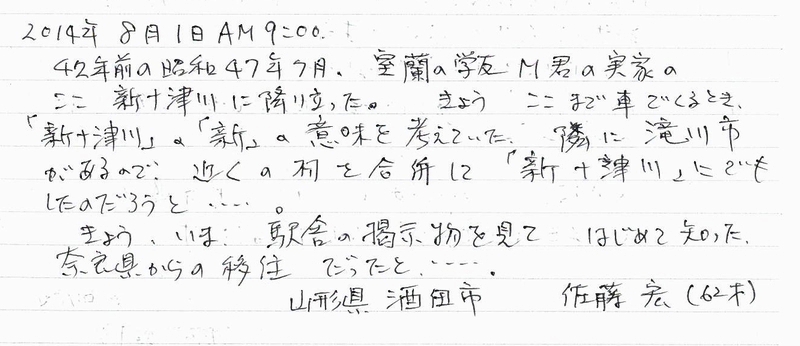 2014年 8月1日 AM 9:00.
42年前の昭和47年7月、 室蘭の学友 M君の実家の
ここ 新十津川に降り立った。 きょう ここまで車でくるとき、
「新十津川」の「新」の意味を考えていた. 隣に 滝川市
があるので、近くの村を合併して「新十津川」にでも
したのだろうと‥‥。
きょう、いま、駅舎の掲示物を見て はじめて知った.
奈良県からの移住 だったと‥‥.
山形県 酒田市 佐藤 宏 (62才)